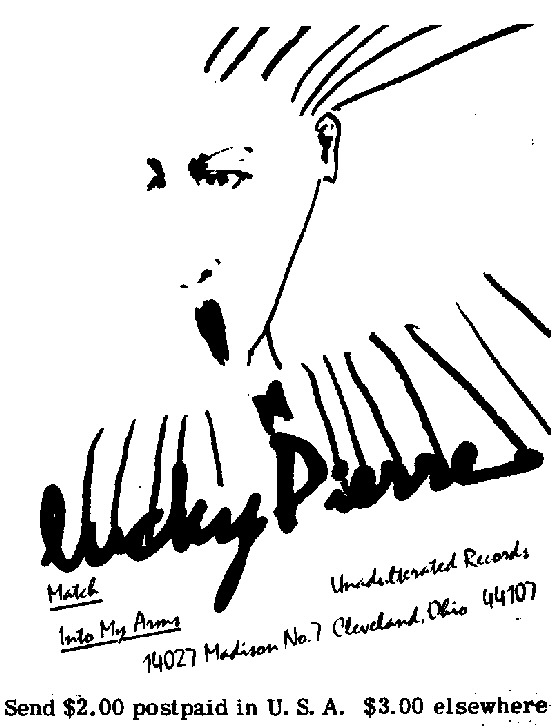 Lucky Pierre
Match
Into My Arms
Unadulterated Records
14027 Madison No. 7 Cleveland, Ohio 44107
Send $2.00 postpaid in U. S. A. $3.00 elsewhere